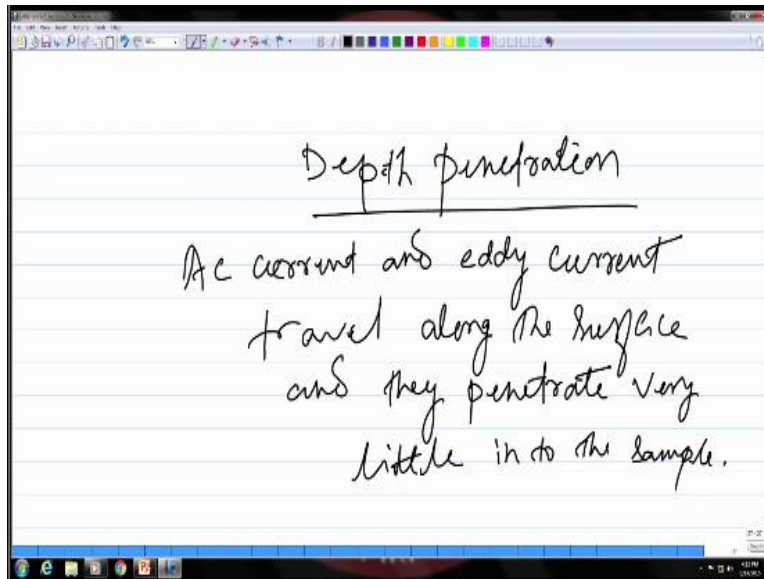 Depth penetration
Ac current and eddy current
travel along the surface
and they penetrate very
little in to the sample.